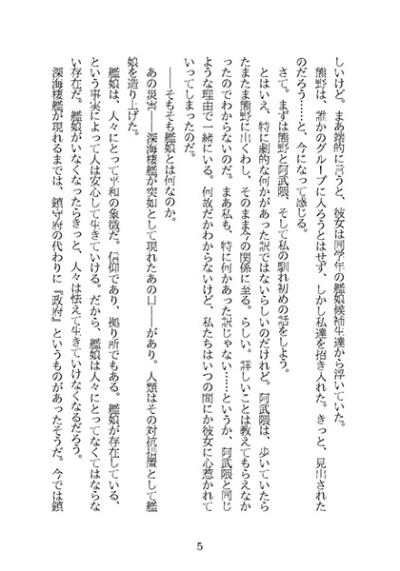 しいけど。まあ端的に言うと、彼女は同学年の艦娘候補生達から浮いていた。
熊野は、誰かのグループに入ろうとはせず、しかし私達を招き入れた。きっと、見出された
のだろう……と、今になって感じる。
さて。まずは熊野と阿武隈、そして私の馴れ初めの話をしよう。
とはいえ、特に劇的な何かがあった訳ではないらしいのだけれど。阿武隈は、歩いていたら
たまたま熊野に出くわし、そのまま今の関係に至る。らしい。詳しいことは教えてもらえなか
ったのでわからないのだ。まあ私も、特に何かあった訳じゃない……というか、阿武隈と同じ
ような理由で一緒にいる。何故だかわからないけど、私たちはいつの間にか彼女に心惹かれて
いってしまったのだ。
――そもそも艦娘とは何なのか。
あの災害――深海棲艦が突如として現れたあの日――があり。人類はその対抗措置として艦
娘を造り上げた。
艦娘は、人々にとって平和の象徴だ。信仰であり、拠り所でもある。艦娘が存在している、
という事実によって人は安心して生きていける。だから、艦娘は人々にとってなくてはならな
い存在だ。艦娘がいなくなったらきっと、人々は怯えて生きていけなくなるだろう。
深海棲艦が現れるまでは、鎮守府の代わりに『政府』というものがあったそうだ。今では鎮
5